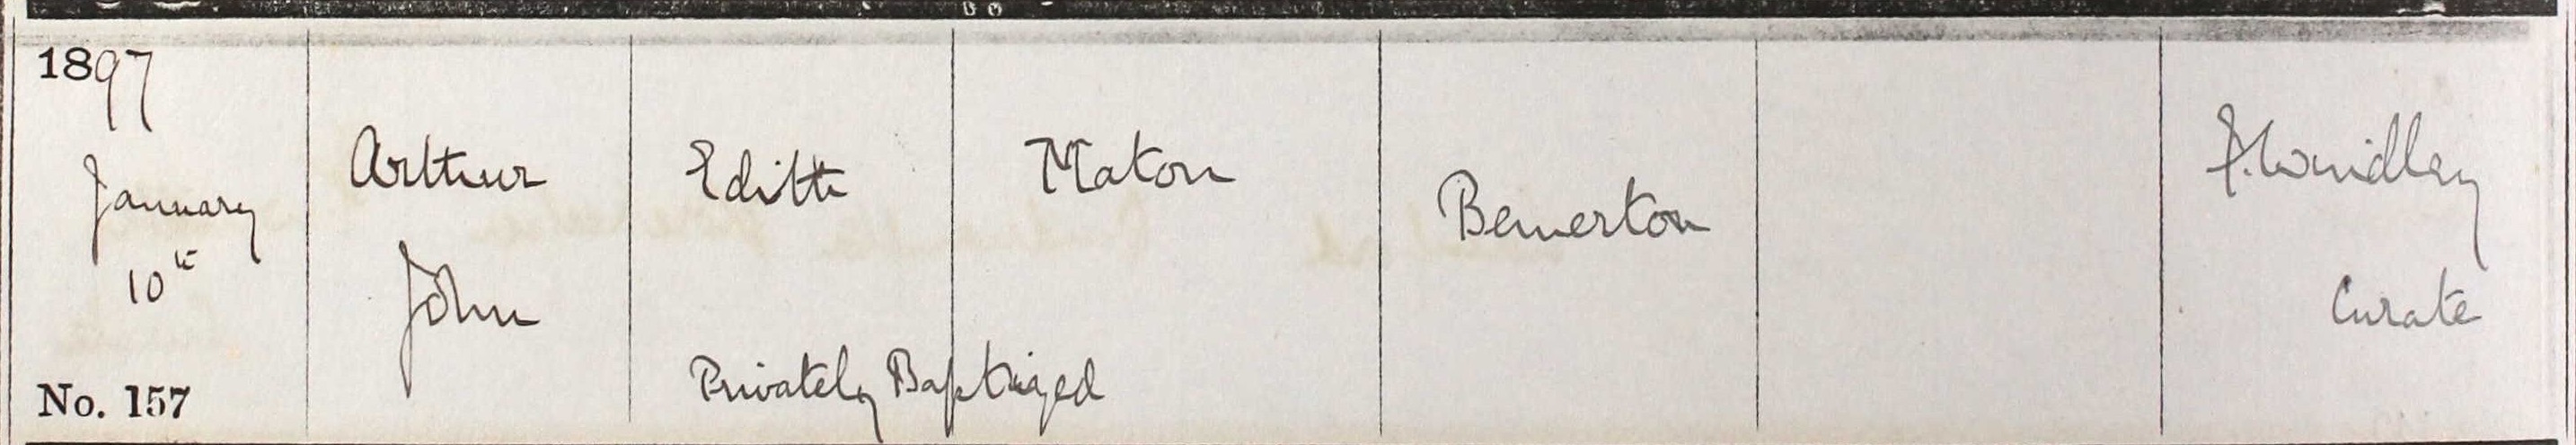 1897
January
10th
No. 157
Arthur
John
Edith
Maton
Privately Baptized
Bemerton
F. Windley
Curate